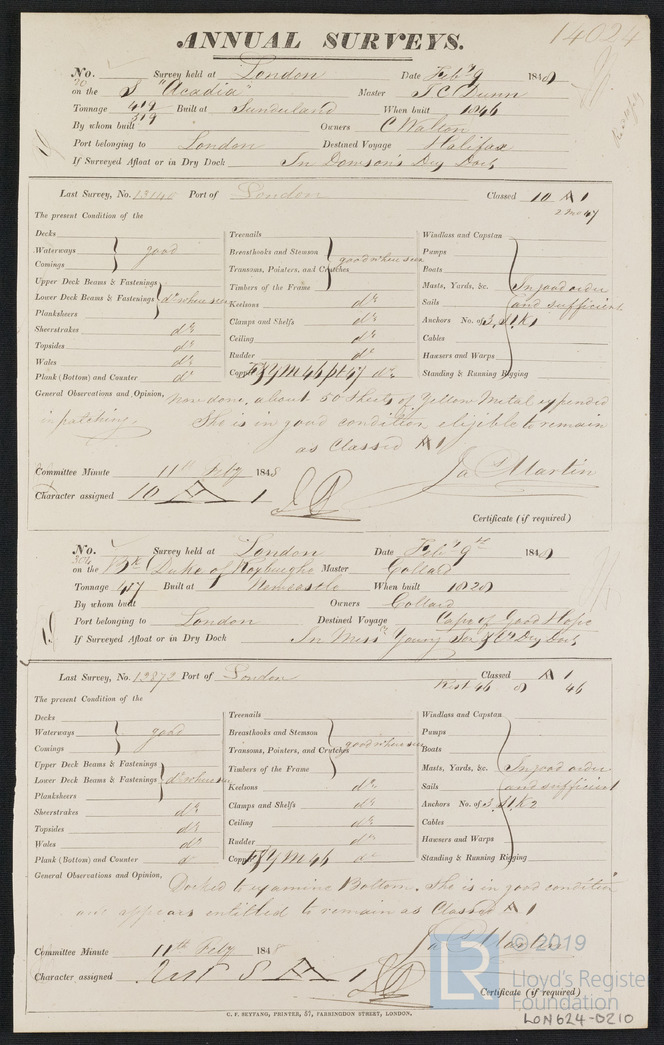 14024
ANNUAL SURVEYS.
No. 70 Survey held at London Date Feby 9 1848
on the S "Acadia" Master J C Dunn
Tonnage 419 319 Built at Sunderland When built 1846
By whom built Owners C Walton
Port belonging to London Destined Voyage Halifax
If Surveyed Afloat or in Dry Dock In Domson's Dry Dock
Last Survey, No. 13140 Port of London Classed 10 A 1
47
The present Condition of the
Decks
Waterways good
Comings
Upper Deck Beams & Fastenings
Lower Deck Beams & Fastenings do where seen
Planksheers
Sheerstrakes do
Topsides do
Wales do
Plank (Bottom) and Counter do
Treenails
Breasthooks and Stemson good where seen
Transoms, Pointers, and Crutches
Timbers of the Frame
Keelsons do
Clamps and Shelfs do
Ceiling do
Rudder do
Copper F&YM 46 pt 47 do
Windlass and Capstan
Pumps
Boats
Masts, Yards, &c. In good order
Sails and sufficient
Anchors No. of 3, S1, K1
Cables
Hawsers and Warps
Standing & Running Rigging
General Observations and Opinion, Now done, about 50 Sheets of Yellow Metal expended
in patching. She is in good condition eligible to remain
as Classed A 1
Committee Minute 11th Feby 1848 Jas Martin
Character assigned 10 A 1
Certificate (if required)
No. 304 Survey held at London Date Feby 9th 1848
on the Bk Duke of Roxburghe Master Collard
Tonnage 417 Built at Newcastle When built 1828
By whom built Owners Collard
Port belonging to London Destined Voyage Cape of Good Hope
If Surveyed Afloat or in Dry Dock In Messrs Young Son & Co Dry Dock
Last Survey, No. 12872 Port of London Classed A 1
Rest 46 8 46
The present Condition of the
Decks
Waterways good
Comings
Upper Deck Beams & Fastenings
Lower Deck Beams & Fastenings do where seen
Planksheers
Sheerstrakes do
Topsides do
Wales do
Plank (Bottom) and Counter do
Treenails
Breasthooks and Stemson
Transoms, Pointers, and Crutches good where seen
Timbers of the Frame
Keelsons do
Clamps and Shelfs do
Ceiling do
Rudder do
Copper F&YM 46 do
Windlass and Capstan
Pumps
Boats
Masts, Yards, &c. In good order
Sails and sufficient
Anchors No. of 3, S1, K2
Cables
Hawsers and Warps
Standing & Running Rigging
General Observations and Opinion, Docked to examine Bottom. She is in good condition
and appears entitled to remain as Classed A 1
Jas Martin
Committee Minute 11th Feby 1848
Character assigned Rest 8 A 1
Certificate (if required)
C. F. SEYFANG, PRINTER, 57, FARRINGDON STREET, LONDON.
LR © 2019
Lloyd's Register
Foundation
LON624-0210